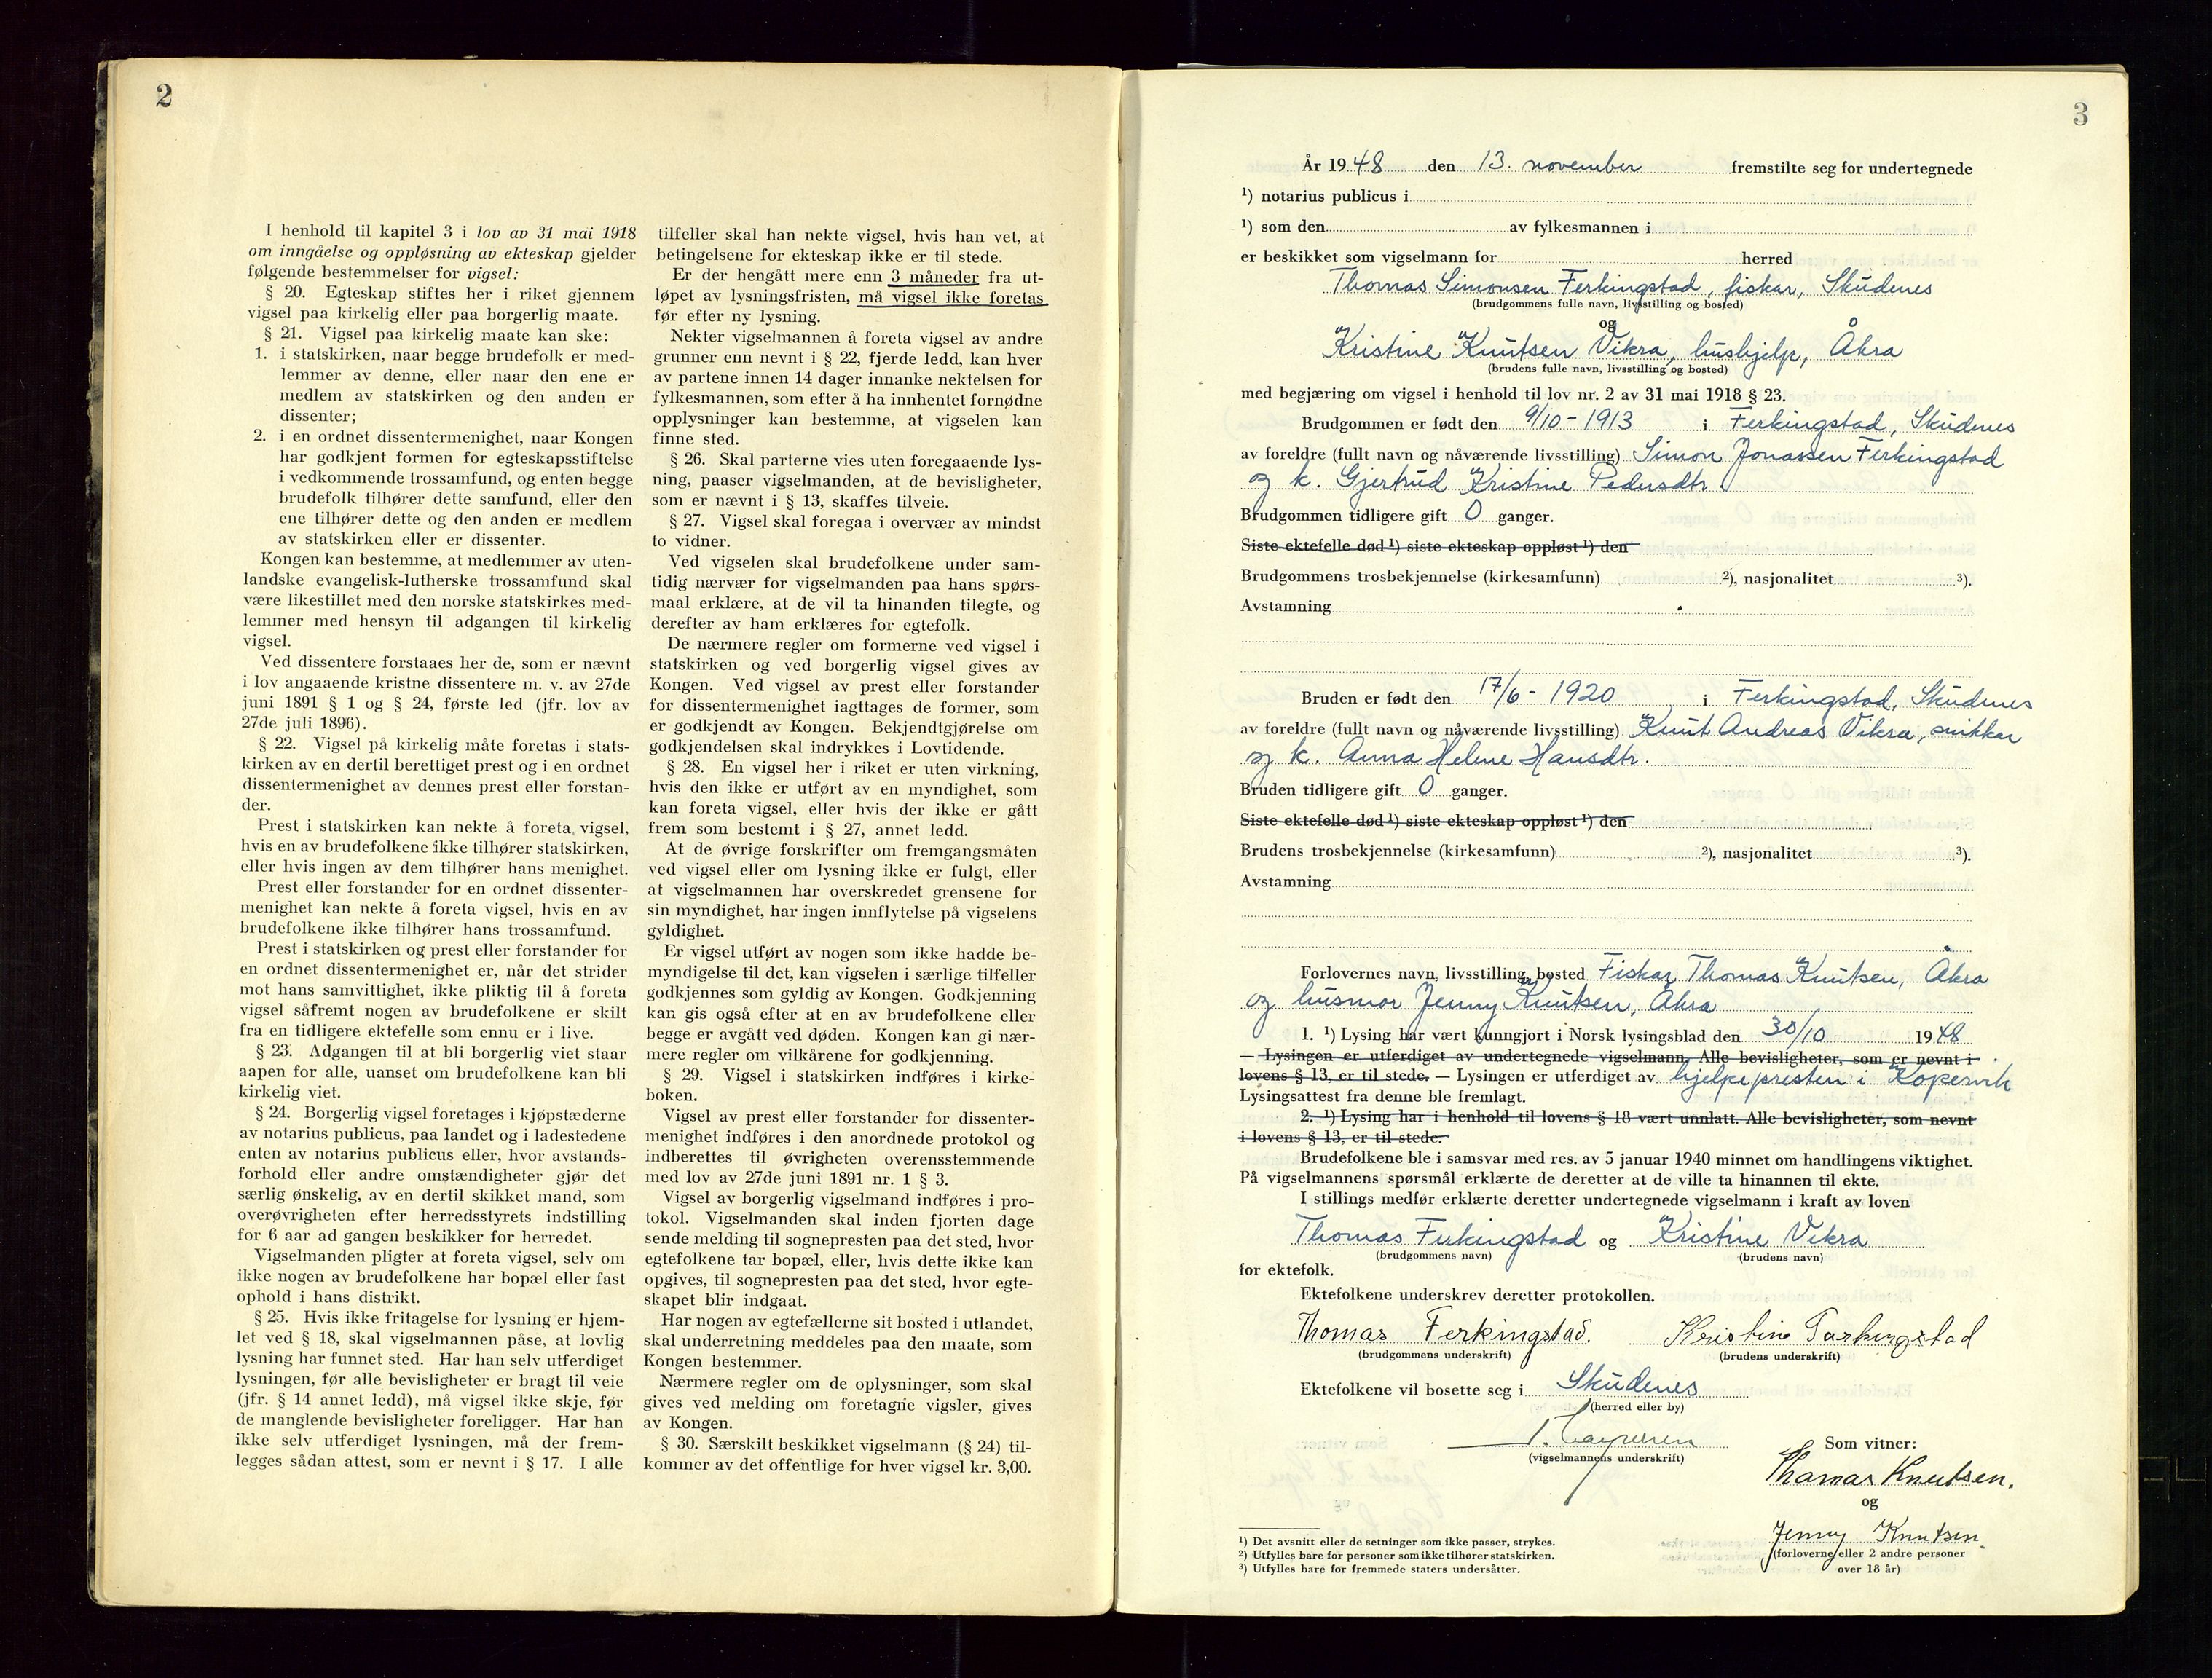 2
I henhold til kapitel 3 i lov av 31 mai 1918
om inngåelse og oppløsning av ekteskap gjelder
følgende bestemmelser for vigsel:
§ 20. Egteskap stiftes her i riket gjennem
vigsel paa kirkelig eller paa borgerlig maate.
§ 21. Vigsel paa kirkelig maate kan ske:
1. i statskirken, naar begge brudefolk er med-
lemmer av denne, eller naar den ene er
medlem av statskirken og den anden er
dissenter;
2. i en ordnet dissentermenighet, naar Kongen
har godkjent formen for egteskapsstiftelse
i vedkommende trossamfund, og enten begge
brudefolk tilhører dette samfund, eller den
ene tilhører dette og den anden er medlem
av statskirken eller er dissenter.
Kongen kan bestemme, at medlemmer av uten-
landske evangelisk-lutherske trossamfund skal
være likestillet med den norske statskirkes med-
lemmer med hensyn til adgangen til kirkelig
vigsel.
Ved dissentere forstaaes her de, som er nævnt
i lov angaaende kristne dissentere m. v. av 27de
juni 1891 § 1 og § 24, første led (jfr. lov av
27de juli 1896).
§ 22. Vigsel på kirkelig måte foretas i stats-
kirken av en dertil berettiget prest og i en ordnet
dissentermenighet av dennes prest eller forstan-
der.
Prest i statskirken kan nekte å foreta vigsel,
hvis en av brudefolkene ikke tilhører statskirken,
eller hvis ingen av dem tilhører hans menighet.
Prest eller forstander for en ordnet dissenter-
menighet kan nekte å foreta vigsel, hvis en av
brudefolkene ikke tilhører hans trossamfund.
Prest i statskirken og prest eller forstander for
en ordnet dissentermenighet er, når det strider
mot hans samvittighet, ikke pliktig til å foreta
vigsel såfremt nogen av brudefolkene er skilt
fra en tidligere ektefelle som ennu er i live.
§ 23. Adgangen til at bli borgerlig viet staar
aapen for alle, uanset om brudefolkene kan bli
kirkelig viet.
§ 24. Borgerlig vigsel foretages i kjøpstæderne
av notarius publicus, paa landet og i ladestedene
enten av notarius publicus eller, hvor avstands-
forhold eller andre omstændigheter gjør det
særlig ønskelig, av en dertil skikket mand, som
overøvrigheten efter herredsstyrets indstilling
for 6 aar ad gangen beskikker for herredet.
Vigselmanden pligter at foreta vigsel, selv om
ikke nogen av brudefolkene har bopæl eller fast
ophold i hans distrikt.
§ 25. Hvis ikke fritagelse for lysning er hjem-
let ved § 18, skal vigselmannen påse, at lovlig
lysning har funnet sted. Har han selv utferdiget
lysningen, før alle bevisligheter er bragt til veie
(jfr. § 14 annet ledd), må vigsel ikke skje, før
de manglende bevisligheter foreligger. Har han
ikke selv utferdiget lysningen, må der frem-
legges sådan attest, som er nevnt i § 17. I alle
tilfeller skal han nekte vigsel, hvis han vet, at
betingelsene for ekteskap ikke er til stede.
Er der hengått mere enn 3 måneder fra ut-
løpet av lysningsfristen, må vigsel ikke foretas
før efter ny lysning.
Nekter vigselmannen å foreta vigsel av andre
grunner enn nevnt i § 22, fjerde ledd, kan hver
av partene innen 14 dager innanke nektelsen for
fylkesmannen, som efter å ha innhentet fornødne
opplysninger kan bestemme, at vigselen kan
finne sted.
§ 26. Skal parterne vies uten foregaaende lys-
ning, paaser vigselmanden, at de bevisligheter,
som er nævnt i § 13, skaffes tilveie.
§ 27. Vigsel skal foregaa i overvær av mindst
to vidner.
Ved vigselen skal brudefolkene under sam-
tidig nærvær for vigselmanden paa hans spørs-
maal erklære, at de vil ta hinanden tilegte, og
derefter av ham erklæres for egtefolk.
De nærmere regler om formerne ved vigsel i
statskirken og ved borgerlig vigsel gives av
Kongen. Ved vigsel av prest eller forstander
for dissentermenighet iagttages de former, som
er godkjendt av Kongen. Bekjendtgjørelse om
godkjendelsen skal indrykkes i Lovtidende.
§ 28. En vigsel her i riket er uten virkning,
hvis den ikke er utført av en myndighet, som
kan foreta vigsel, eller hvis der ikke er gått
frem som bestemt i § 27, annet ledd.
At de øvrige forskrifter om fremgangsmåten
ved vigsel eller om lysning ikke er fulgt, eller
at vigselmannen har overskredet grensene for
sin myndighet, har ingen innflytelse på vigselens
gyldighet.
Er vigsel utført av nogen som ikke hadde be-
myndigelse til det, kan vigselen i særlige tilfeller
godkjennes som gyldig av Kongen. Godkjenning
kan gis også efter at en av brudefolkene eller
begge er avgått ved døden. Kongen kan gi nær-
mere regler om vilkårene for godkjenning.
§ 29. Vigsel i statskirken indføres i kirke-
boken.
Vigsel av prest eller forstander for dissenter-
menighet indføres i den anordnede protokol og
indberettes til øvrigheten overensstemmende
med lov av 27de juni 1891 nr. 1 § 3.
Vigsel av borgerlig vigselmand indføres i pro-
tokol. Vigselmanden skal inden fjorten dage
sende melding til sognepresten paa det sted, hvor
egtefolkene tar bopæl, eller, hvis dette ikke kan
opgives, til sognepresten paa det sted, hvor egte-
skapet blir indgaat.
Har nogen av egtefællerne sit bosted i utlandet,
skal underretning meddeles paa den maate, som
Kongen bestemmer.
Nærmere regler om de oplysninger, som skal
gives ved melding om foretagne vigsler, gives
av Kongen.
§ 30. Særskilt beskikket vigselmann (§ 24) til-
kommer av det offentlige for hver vigsel kr. 3,00.
3
År 1948 den 13. november fremstilte seg for undertegnede
¹) notarius publicus i
¹) som den av fylkesmannen i
er beskikket som vigselmann for herred
Thomas Simonsen Ferkingstad, fiskar, Skudenes
(brudgommens fulle navn, livsstilling og bosted)
og
Kristine Knutsen Vikra, hushjelp, Åkra
(brudens fulle navn, livsstilling og bosted)
med begjæring om vigsel i henhold til lov nr. 2 av 31 mai 1918 § 23.
Brudgommen er født den 9/10 - 1913 i Ferkingstad, Skudenes
av foreldre (fullt navn og nåværende livsstilling) Simon Jonassen Ferkingstad
og k. Gjertrud Kristine Pedersdtr.
Brudgommen tidligere gift 0 ganger.
Siste ektefelle død ¹) siste ekteskap oppløst ¹) den
Brudgommens trosbekjennelse (kirkesamfunn) ²), nasjonalitet ³).
Avstamning
Bruden er født den 17/6 - 1920 i Ferkingstad, Skudenes
av foreldre (fullt navn og nåværende livsstilling) Knut Andreas Vikra, snikkar
og k. Anna Helene Hansdtr.
Bruden tidligere gift 0 ganger.
Siste ektefelle død ¹) siste ekteskap oppløst ¹) den
Brudens trosbekjennelse (kirkesamfunn) ²), nasjonalitet ³).
Avstamning
Forlovernes navn, livsstilling, bosted Fiskar Thomas Knutsen, Åkra
og husmor Jenny Knutsen, Åkra
1. ¹) Lysing har vært kunngjort i Norsk lysingsblad den 30/10 1948
— Lysingen er utferdiget av undertegnede vigselmann. Alle bevisligheter, som er nevnt i
lovens § 13, er til stede. — Lysingen er utferdiget av hjelpepresten i Kopervik
Lysingsattest fra denne ble fremlagt.
2. ¹) Lysing har i henhold til lovens § 18 vært unnlatt. Alle bevisligheter, som nevnt
i lovens § 13, er til stede.
Brudefolkene ble i samsvar med res. av 5 januar 1940 minnet om handlingens viktighet.
På vigselmannens spørsmål erklærte de deretter at de ville ta hinannen til ekte.
I stillings medfør erklærte deretter undertegnede vigselmann i kraft av loven
Thomas Ferkingstad og Kristine Vikra
(brudgommens navn) (brudens navn)
for ektefolk.
Ektefolkene underskrev deretter protokollen.
Thomas Ferkingstad. Kristine Ferkingstad
(brudgommens underskrift) (brudens underskrift)
Ektefolkene vil bosette seg i Skudenes
(herred eller by)
(vigselmannens underskrift)
Som vitner:
Thomas Knutsen.
og
Jenny Knutsen.
(forloverne eller 2 andre personer
over 18 år)
¹) Det avsnitt eller de setninger som ikke passer, strykes.
²) Utfylles bare for personer som ikke tilhører statskirken.
³) Utfylles bare for fremmede staters undersåtter.